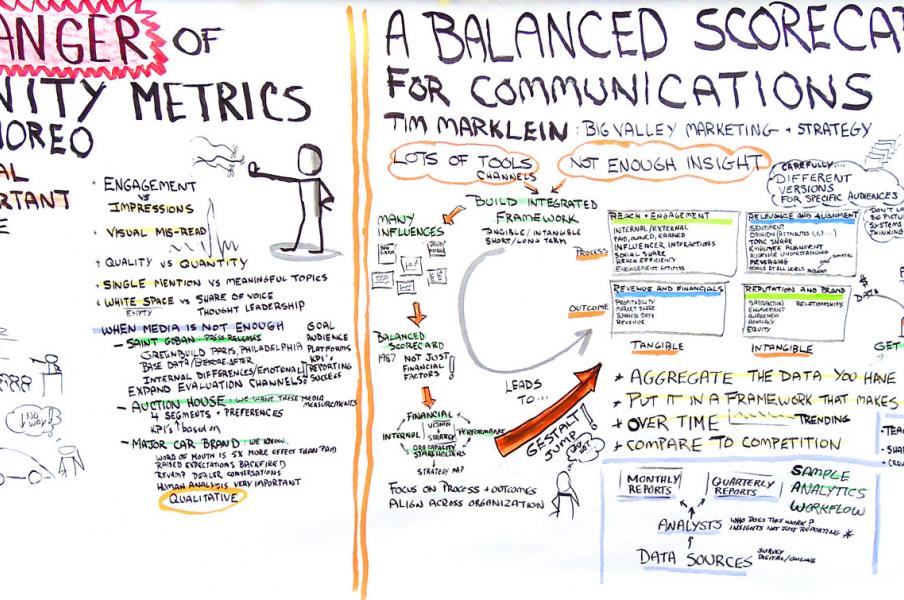 ANGER OF
NITY METRICS
MOREO
AL
RTANT
E
• ENGAGEMENT
VS
IMPRESSIONS
• VISUAL MIS-READ
• QUALITY VS QUANTITY
• SINGLE MENTION VS MEANINGFUL TOPICS
• WHITE SPACE VS SHARE OF VOICE
EMPTY
THOUGHT LEADERSHIP
WHEN MEDIA IS NOT ENOUGH
- SAINT GOBAN - PRESS RELEASES
GREENBUILD PARIS, PHILADELPHIA
BASE DATA/BEFORE-AFTER
INTERNAL DIFFERENCES/EMOTIONAL
EXPAND EVALUATION CHANNELS
GOAL
AUDIENCE
PLATFORMS
KPI'S
REPORTING
SUCCESS
- AUCTION HOUSE - WE WANT THESE MEDIA
MEASUREMENTS
4 SEGMENTS + PREFERENCES
KPI'S based on
- MAJOR CAR BRAND - WE KNOW
WORD OF MOUTH IS 5X MORE EFFECT THAN PAID
RAISED EXPECTATIONS BACKFIRED
REVAMP DEALER CONVERSATIONS
HUMAN ANALYSIS VERY IMPORTANT
QUALITATIVE
NO WAY!
A BALANCED SCORECA
FOR COMMUNICATIONS
TIM MARKLEIN : BIG VALLEY MARKETING + STRATEGY
LOTS OF TOOLS
CHANNELS
NOT ENOUGH INSIGHT
BUILD INTEGRATED
FRAMEWORK
TANGIBLE/INTANGIBLE
SHORT/LONG TERM
MANY
INFLUENCES
BALANCED
SCORECARD
1987 NOT JUST
FINANCIAL
FACTORS!
FINANCIAL
INTERNAL
VISION
+
STRATEGY
PERFORMANCE
ORG CAPACITY
STAKEHOLDERS
STRATEGY MAP
FOCUS ON PROCESS + OUTCOMES
ALIGN ACROSS ORGANIZATION
LEADS
TO...
GESTALT
JUMP!
PROCESS
REACH + ENGAGEMENT
INTERNAL/EXTERNAL
PAID, OWNED, EARNED
INFLUENCER INTERACTIONS
SOCIAL SHARE
REACH EFFICIENTLY
RELEVANCE AND ALIGNMENT
SENTIMENT
TOPIC SHARE
EMPLOYEE ALIGNMENT
AUDIENCE UNDERSTANDING
MESSAGING
OUTCOME
REVENUE AND FINANCIALS
PROFITABILITY
MARKET SHARE
BUSINESS DATA
REVENUE
REPUTATION AND BRAND
SATISFACTION
RELATIONSHIPS
ENGAGEMENT
AWARENESS
ADVOCACY
EQUITY
TANGIBLE
INTANGIBLE
CAREFULLY...
DIFFERENT
VERSIONS
FOR SPECIFIC AUDIENCES
DON'T LO
BIG PICTU
SYSTEMS
THINKING
DATA
GET
* AGGREGATE THE DATA YOU HAVE
* PUT IT IN A FRAMEWORK THAT MAKES
* OVER TIME TRENDING
* COMPARE TO COMPETITION
MONTHLY
REPORTS
QUARTERLY
REPORTS
SAMPLE
ANALYTICS
WORKFLOW
ANALYSTS
WHO DOES THIS WORK?
INSIGHTS NOT JUST REPORTING *
DATA SOURCES
SURVEY
DIGITAL/ONLINE
-TEA
-SHA